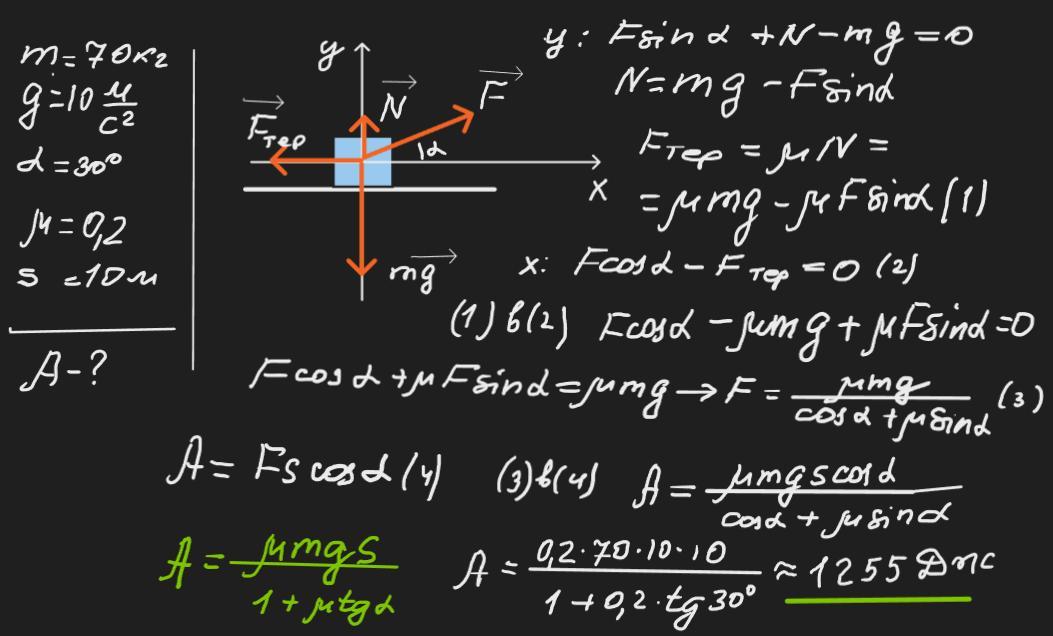 m=70кг
g=10 м/с²
α=30°
μ=0,2
s=10м
A-?
y
N
F
Fтер
α
x
mg
y: Fsinα+N-mg=0
N=mg-Fsinα
Fтер=μN=
=μmg-μFsinα(1)
x: Fcosα-Fтер=0 (2)
(1)в(2) Fcosα-μmg+μFsinα=0
Fcosα+μFsinα=μmg→F=μmg/(cosα+μsinα) (3)
A=Fscosα(4) (3)в(4) A=μmgscosα/(cosα+μsinα)
A=μmgs/(1+μtgα) A=0,2·70·10·10/(1+0,2·tg30°)≈1255Дж